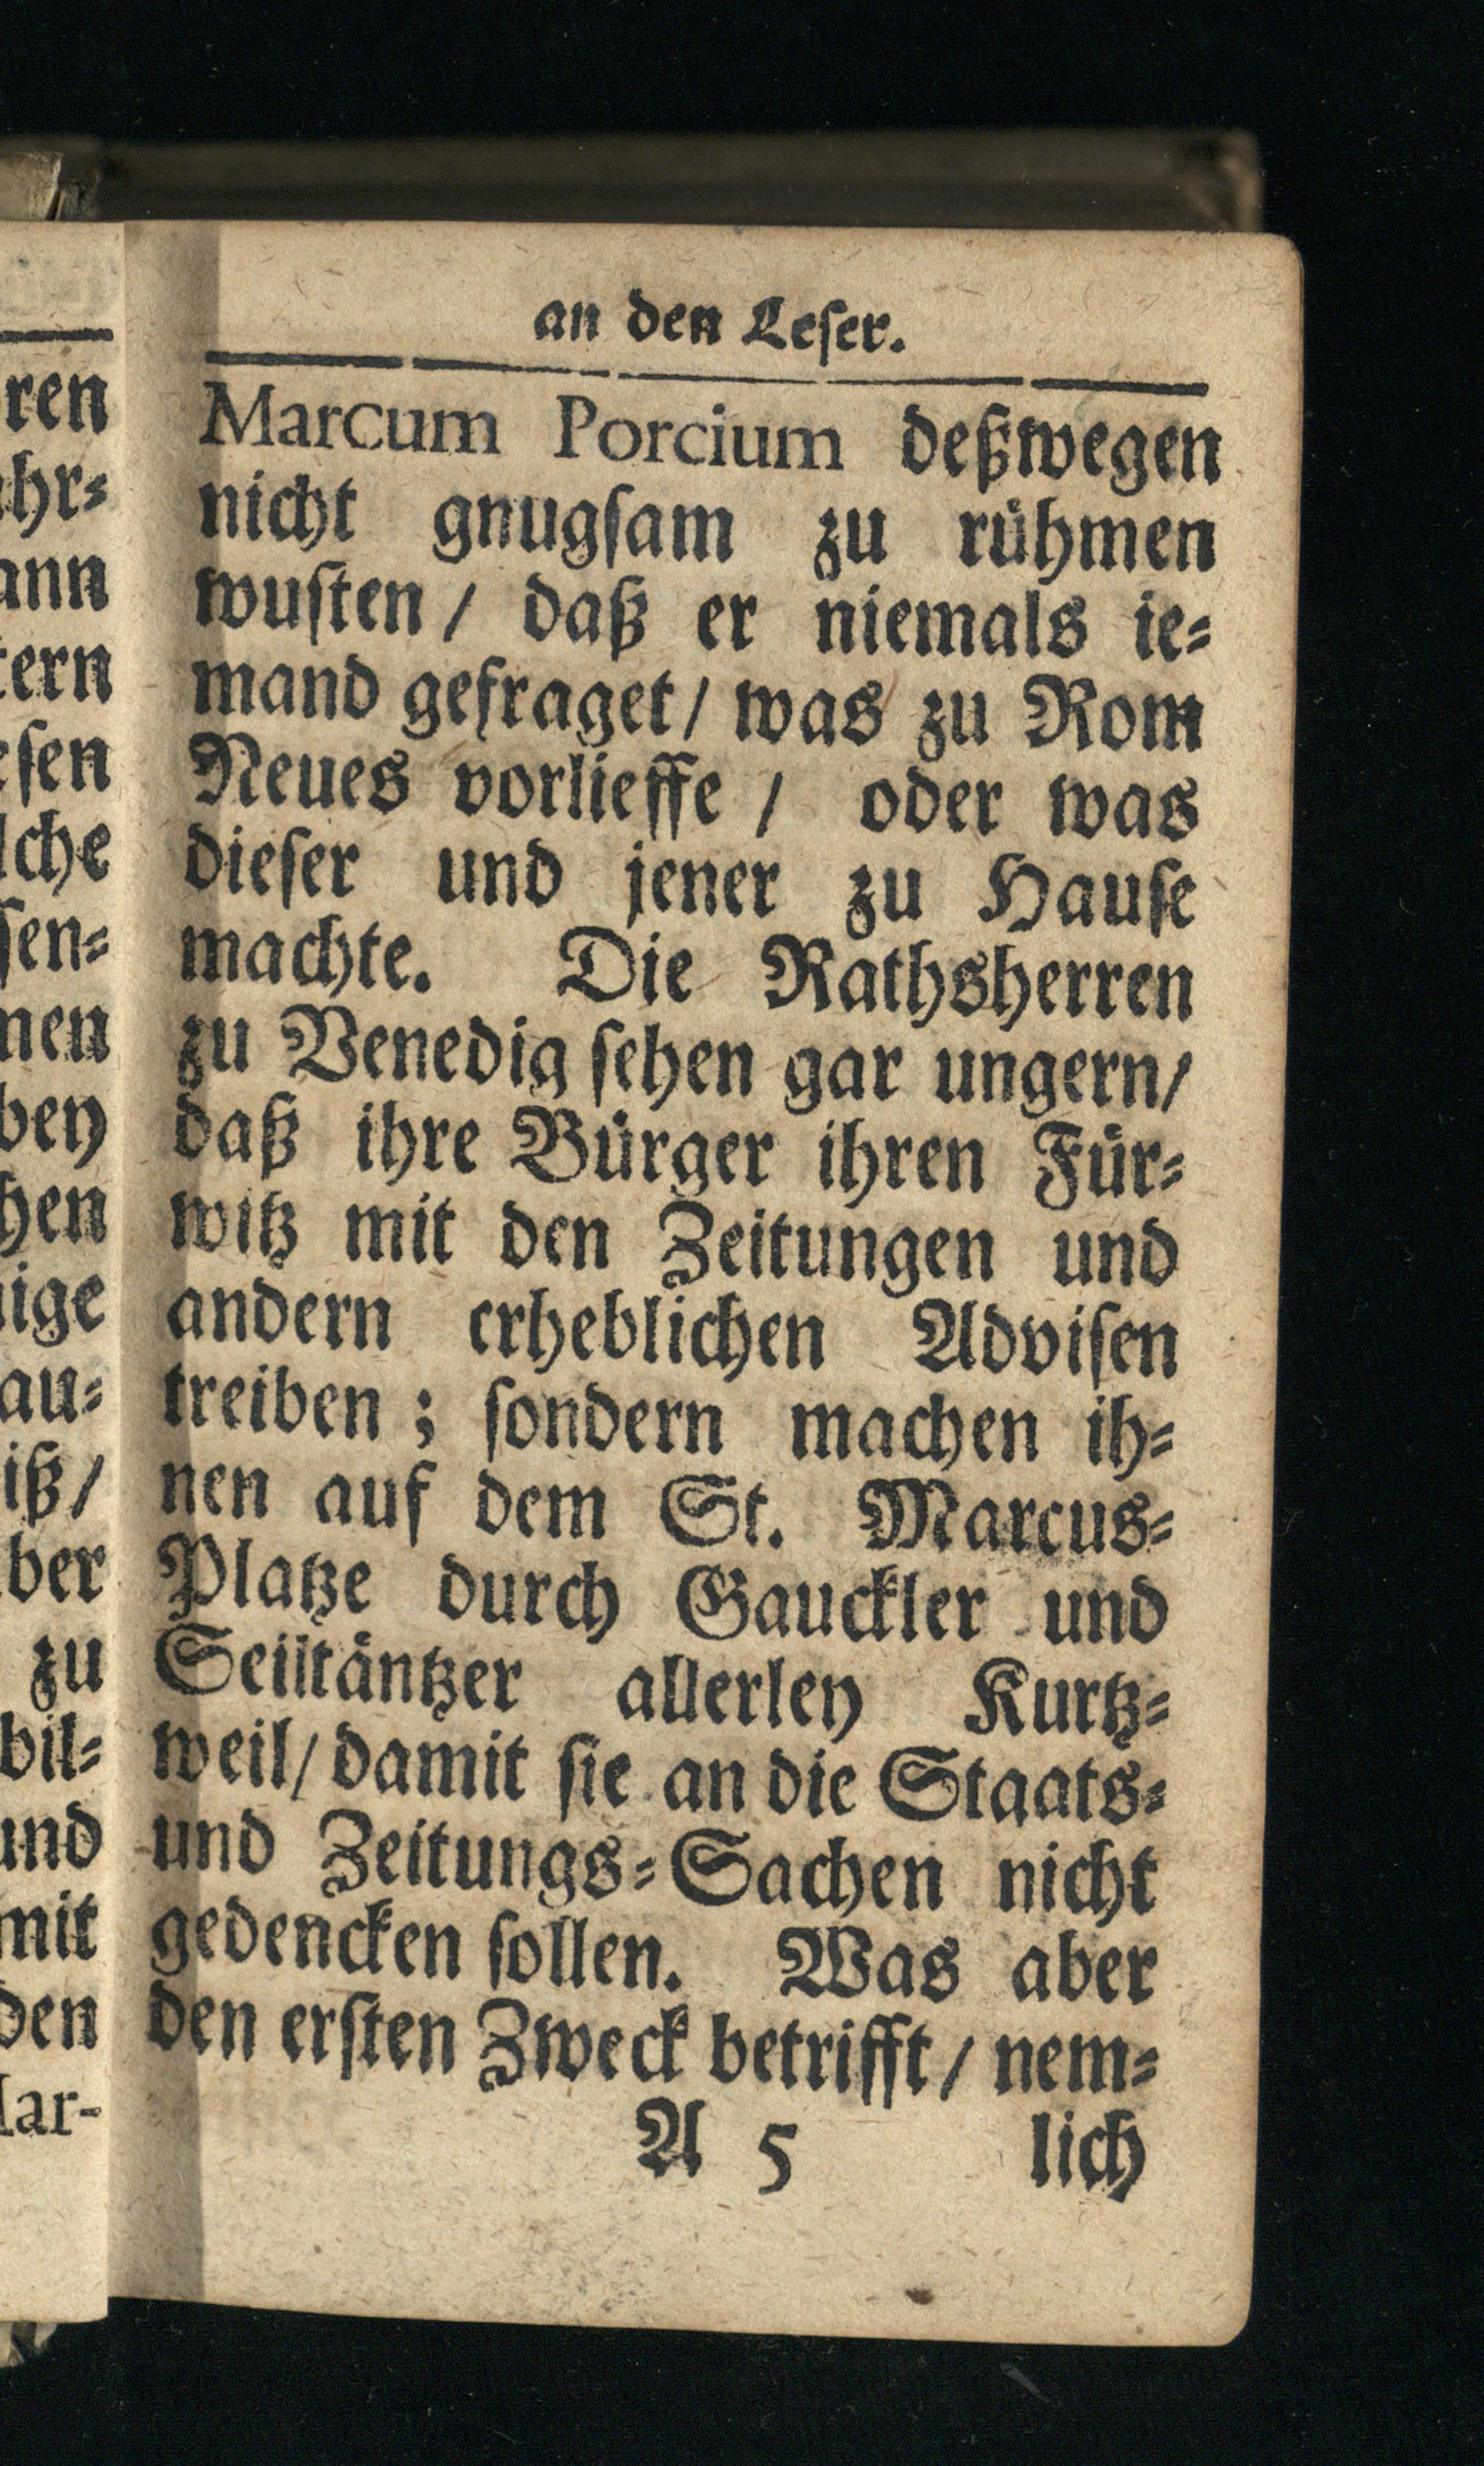 an den Leſer.
Marcum Porcium deßwegen
nicht gnugſam zu rühmen
wuſten / daß er niemals ie⸗
mand gefraget / was zu Rom
Neues vorlieffe / oder was
dieſer und jener zu Hauſe
machte. Die Rathsherren
zu Venedig ſehen gar ungern /
daß ihre Bürger ihren Für⸗
witz mit den Zeitungen und
andern erheblichen Adviſen
treiben ; ſondern machen ih⸗
nen auf dem St. Marcus⸗
Platze durch Gauckler und
Seiltäntzer allerley Kurtz⸗
weil / damit ſie an die Staats⸗
und Zeitungs⸗Sachen nicht
gedencken ſollen. Was aber
den erſten Zweck betrifft / nem⸗
A 5 lich